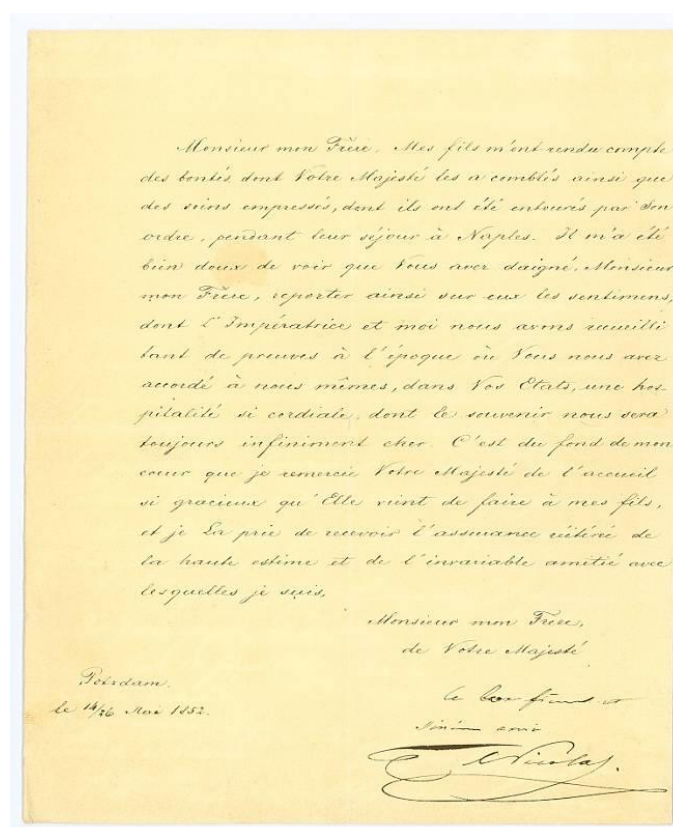 Monsieur mon Frère. Mes fils m'ont rendu compte
des bontés dont Votre Majesté les a comblés ainsi que
des soins empressés, dont ils ont été entourés par Son
ordre, pendant leur séjour à Naples. Il m'a été
bien doux de voir que Vous avez daigné, Monsieur
mon Frère, reporter ainsi sur eux les sentimens,
dont l'Impératrice et moi nous avons recueilli
tant de preuves à l'époque où Vous nous avez
accordé à nous mêmes, dans Vos Etats, une hos-
pitalité si cordiale, dont le souvenir nous sera
toujours infiniment cher. C'est du fond de mon
coeur que je remercie Votre Majesté de l'accueil
si gracieux qu'Elle vient de faire à mes fils,
et je La prie de recevoir l'assurance réitérée de
la haute estime et de l'invariable amitié avec
lesquelles je suis,
Monsieur mon Frère,
de Votre Majesté
Potsdam.
le 14/26 Mai 1852.
le bon frère et
ami
Nicolas.